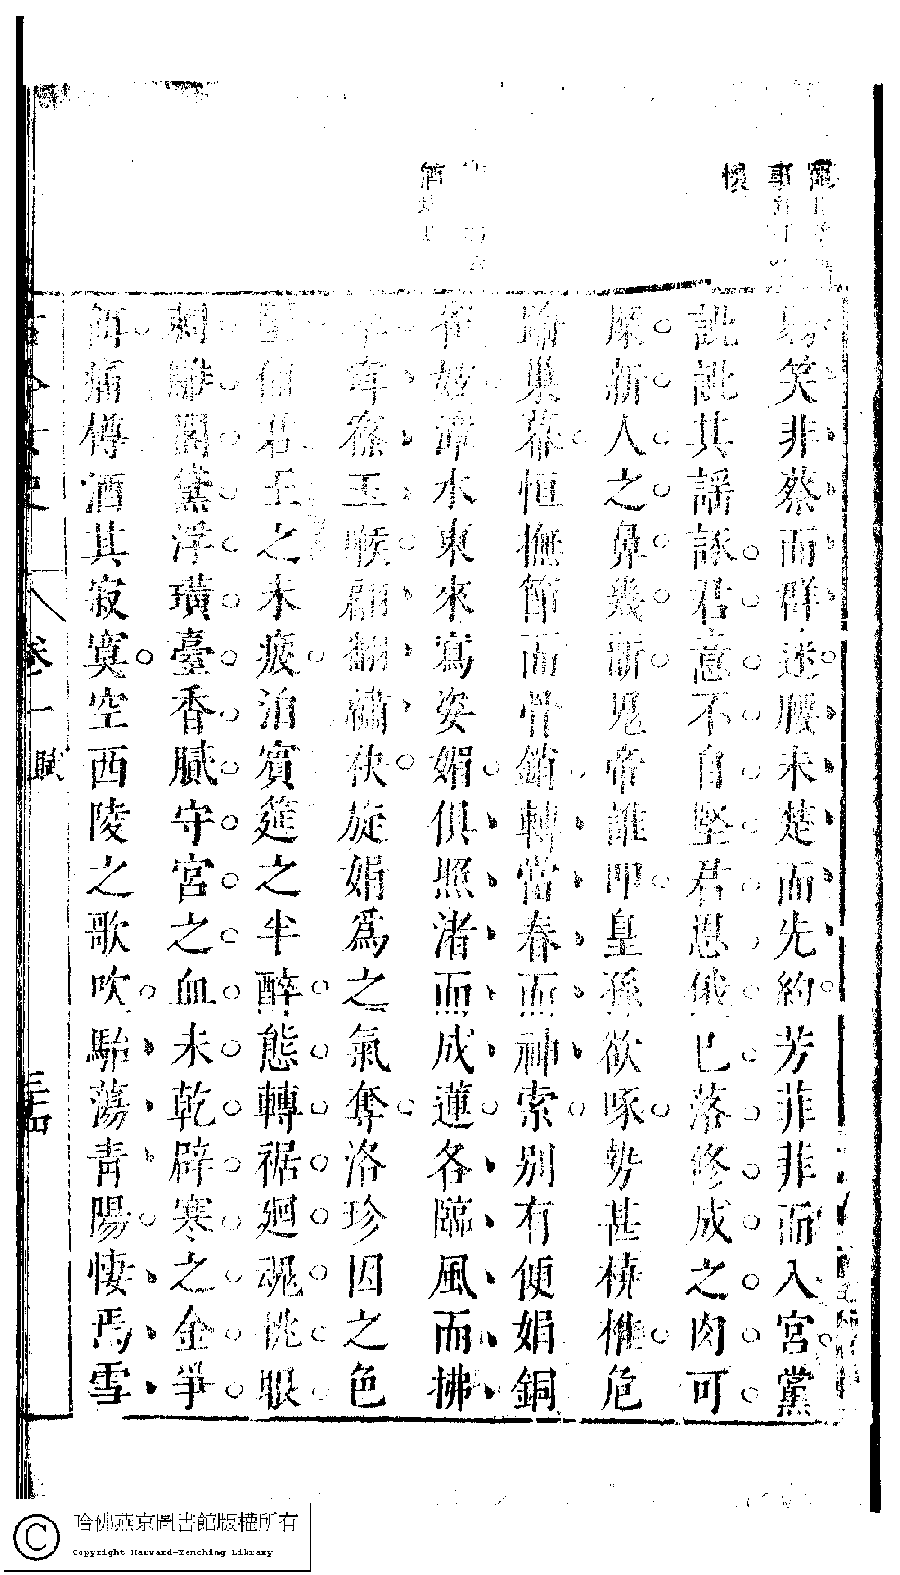 笑非蔡而群迷腰未楚而先約芳菲菲而入宮黨
訿訿其謡諑君意不自堅君恩俄已落修成之肉可
屎新人之鼻幾斮鬼帝誰叩皇孫欲啄勢甚橈椎危
踰巢幕恒撫節而骨銷轉當春而神索别有便娟銅
雀妓漳水東來寫姿媚俱照渚而成蓮各臨風而拂
牢玉喉翩翻繡袂旋娟爲之氣奪洛珍因之色
君王之未疲泊賓筵之半醉態轉裾廻魂佻眼
刺雕閣黛浮璜臺香膩守宮之血未乾辟寒之金爭
痛樽酒其寂寞空西陵之歌吹駘蕩青陽悽焉雪
卷一 賦
哈佛燕京圖書館版權所有
Copyright Harvard-Yenching Library